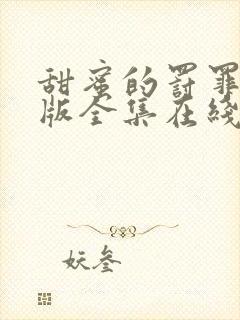 甜蜜的罚罪
版全集在线
妖叁